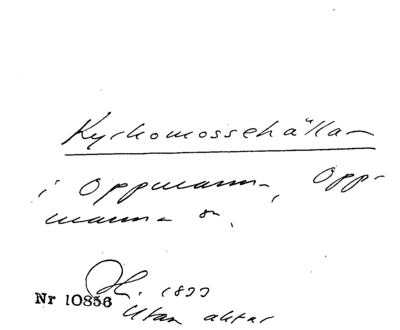 Kyrkomossehällan
i Oppmanna, Opp-
manna sn.
Nr 10836
Utan aktar